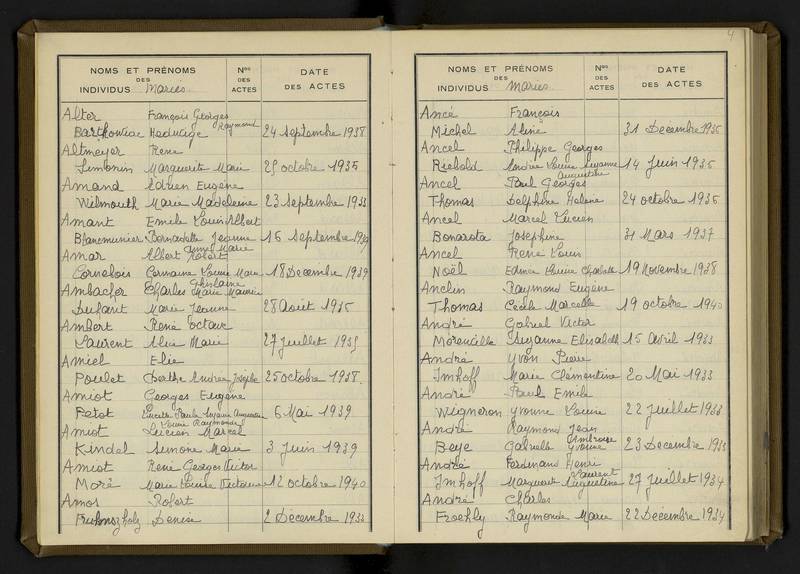 NOMS ET PRÉNOMS DES INDIVIDUS Mariés
Nos DES ACTES
DATE DES ACTES
Alter François Georges Raymond
Barthowiac Hedwige 24 septembre 1938
Altmeyer René
Simonin Marguerite Marie 25 octobre 1935
Amand Adrien Eugène
Wilmouth Marie Madeleine 23 septembre 1933
Amant Emile Louis Albert
Blancmunier Bernadette Jeanne Anne Marie 16 septembre 1939
Amar Albert Robert
Cornebois Germaine Louise Marie Ghislaine 18 Decembre 1939
Ambacher Charles Marie Maurice
Dufant Marie Jeanne 28 Août 1935
Ambert René Octave
Laurent Alice Marie 27 juillet 1935
Amiel Elie
Poulet Berthe Andrée Josèphe 25 octobre 1938
Amiot Georges Eugène
Petot Lucette Paule Suzanne 6 Mai 1939
Amiot Lucien Marcel Louis Raymond
Kindel Simone Marie 3 juin 1939
Amiot René Georges Victor
Moré Marie Louise Victorine 12 octobre 1940
Amos Robert
Denise 2 Décembre 1933
4
NOMS ET PRÉNOMS DES INDIVIDUS Mariés
Nos DES ACTES
DATE DES ACTES
Ancé François
Michel Aline 31 Decembre 1935
Ancel Philippe Georges
Richold Andrée Louise Suzanne Augustine 14 juin 1935
Ancel Paul Georges
Thomas Delphine Helene 24 octobre 1936
Ancel Marcel Lucien
Bonarota Josephine 31 Mars 1937
Ancel René Louis
Noël Edmée Louise Charlotte 19 Novembre 1938
Anclin Raymond Eugène
Thomas Cécile Marcelle 19 octobre 1940
André Gabriel Victor
Morenville Suzanne Elisabeth 15 Avril 1933
André Yvon Pierre
Imhoff Marie Clémentine 20 Mai 1933
André Paul Emile
Wigneron Yvonne Louise 22 juillet 1933
André Raymond Jean Ambroise
Beye Gabrielle Yvonne 23 Decembre 1933
André Ferdinand Henri Laurent
Imhoff Marguerite Augustine 27 juillet 1934
André Charles
Froehly Raymonde Marie 22 Décembre 1934